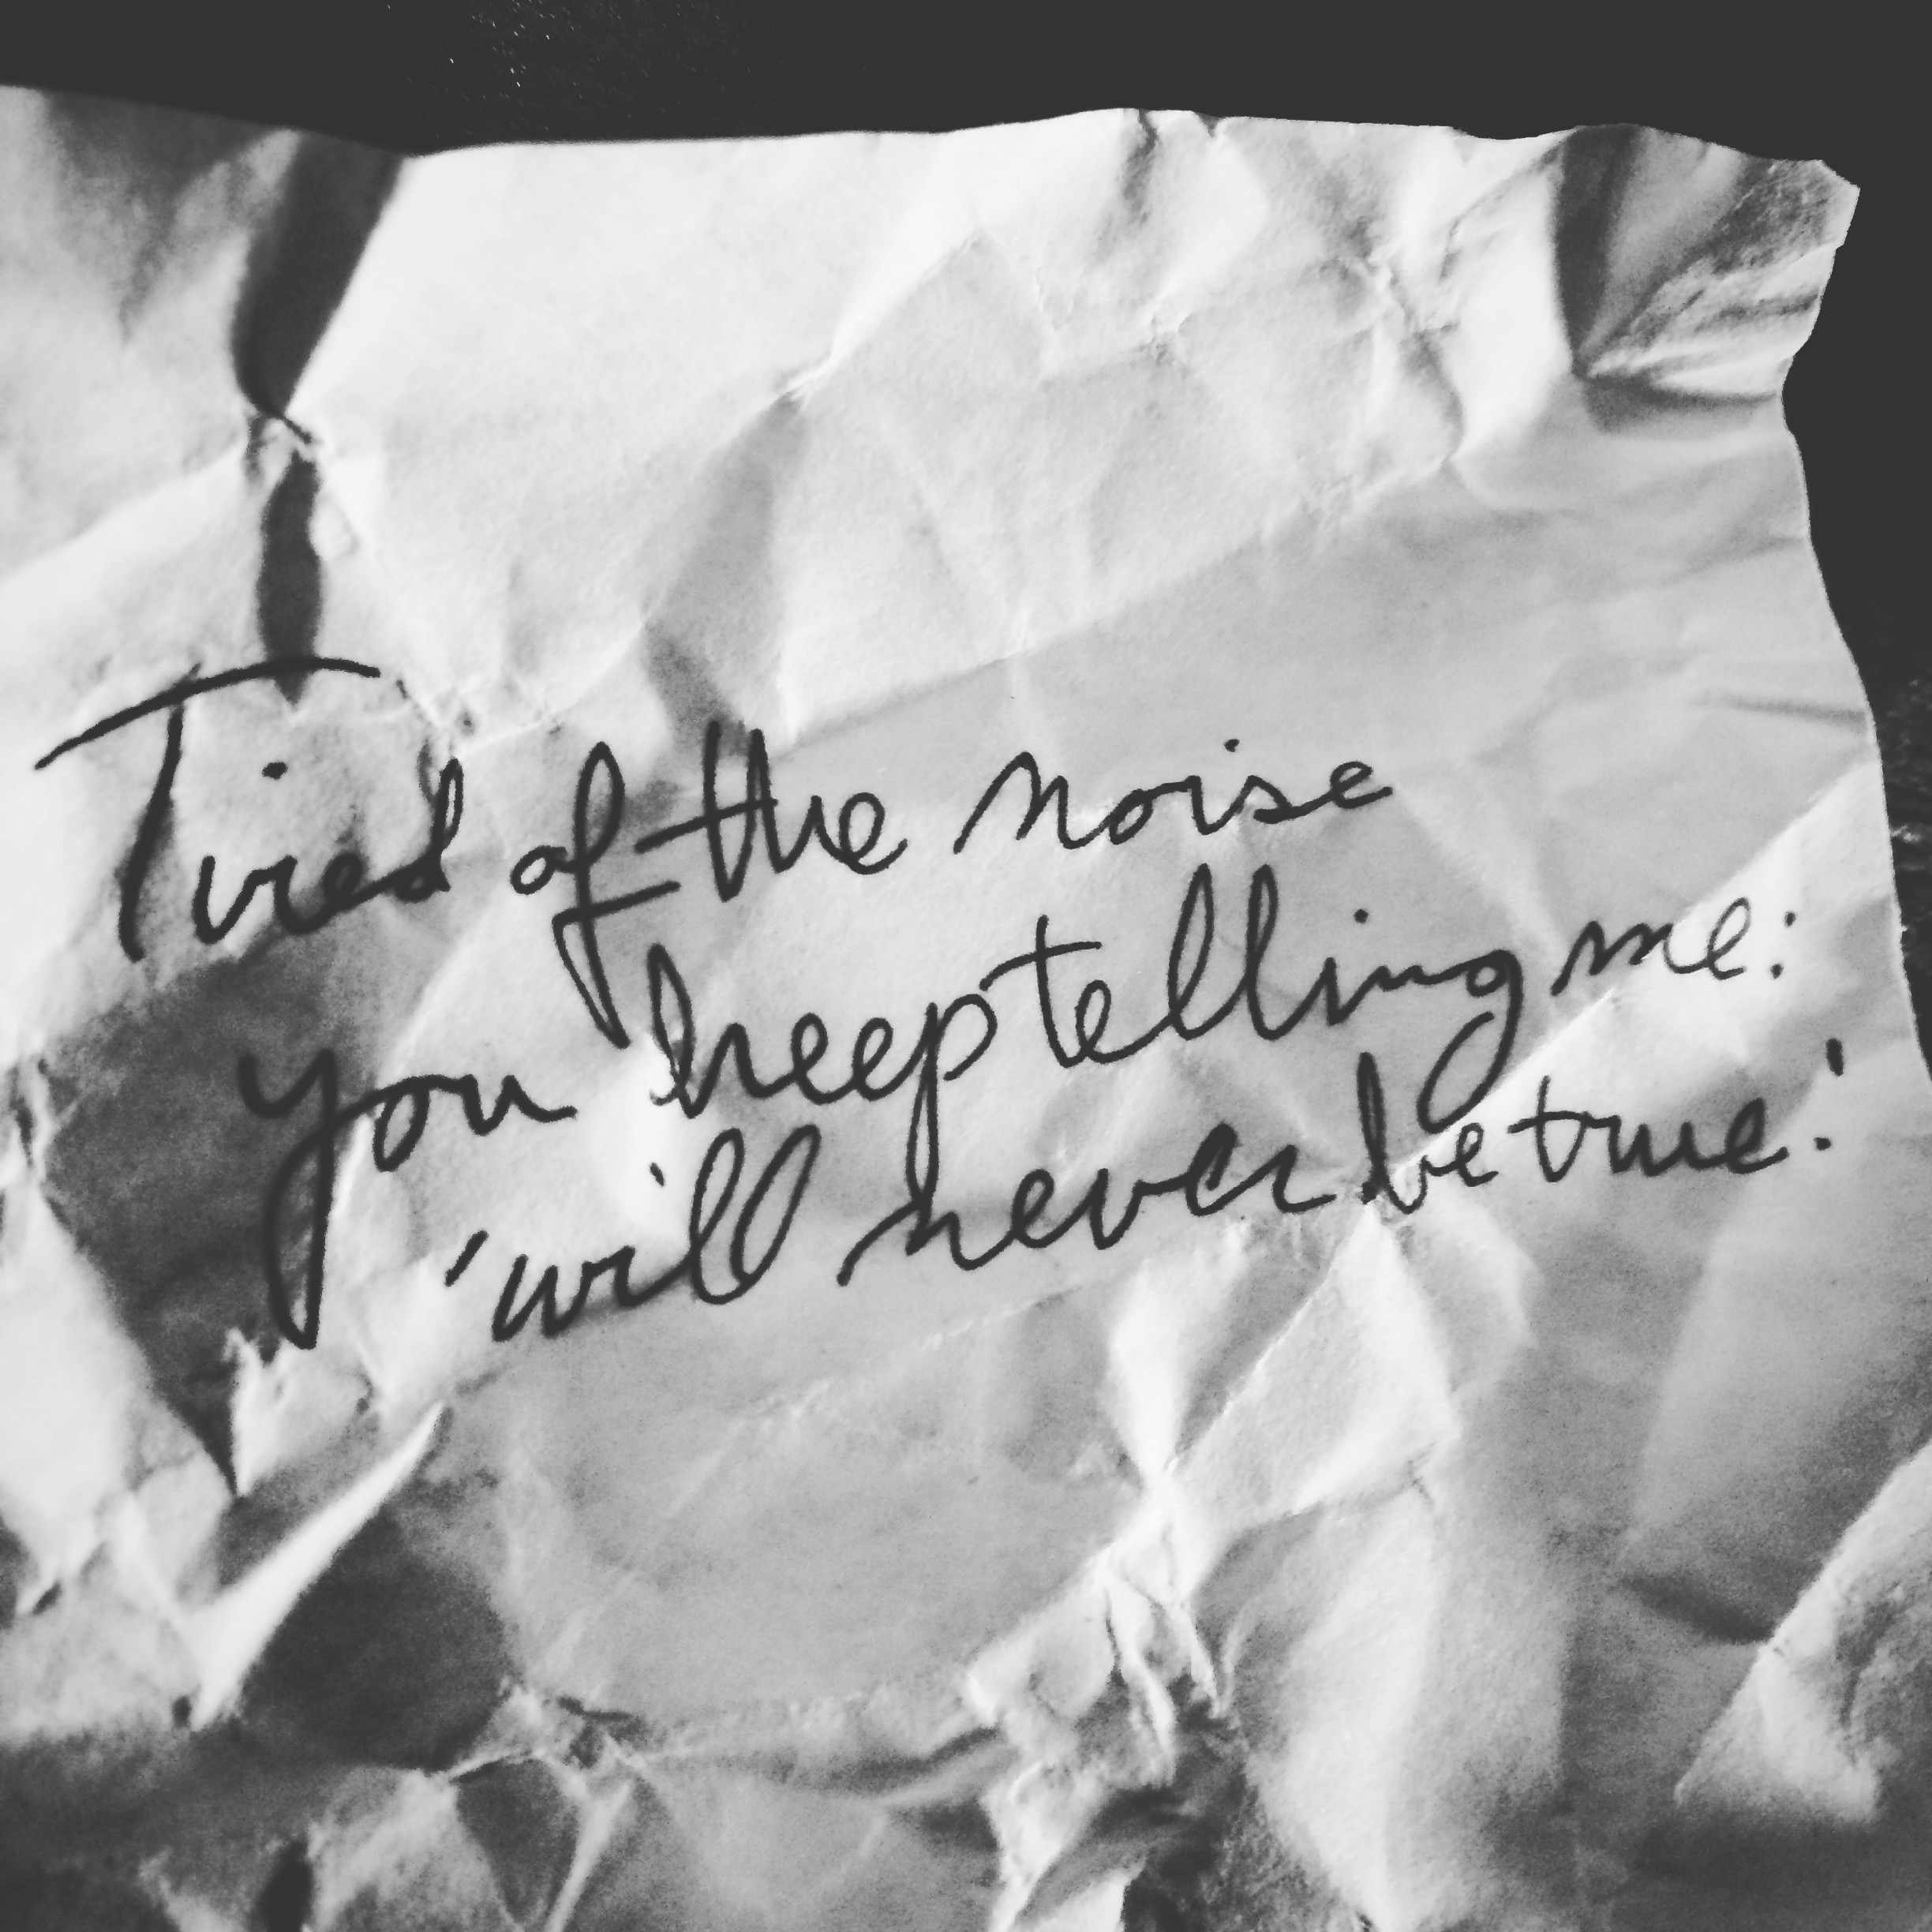 Tired of the noise
you keep telling me:
'will never be true.'